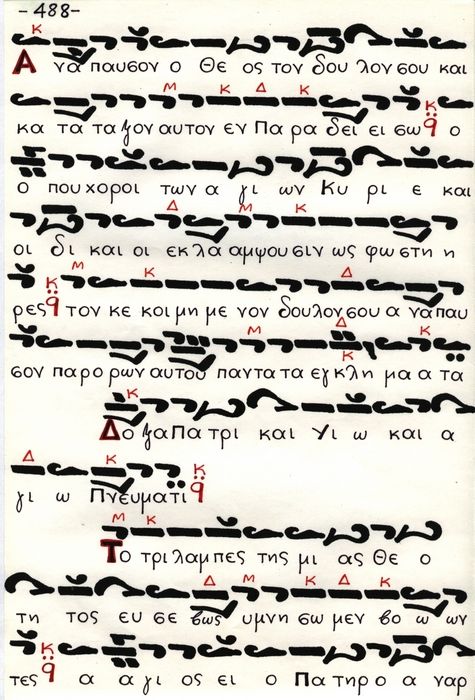 -488-
Κ
Α να παυσον ο Θε ος τον δου λον σου και
Μ Κ Δ Κ
κα τα τα ξον αυτον εν Πα ρα δει ει σω ο
ο που χοροι των α γι ων Κυ ρι ε και
Δ Μ Κ
οι δι και οι εκ λα αμψου σιν ως φω στη η
Μ Κ Δ
ρες τον κε κοι μη με νον δουλον σου α να παυ
Μ Δ Κ Κ
σον παρο ρων αυτου παντα τα εγ κλη μα α τα
Κ
Δο ξα Πα τρι και Υι ω και α
Δ Κ Κ
γι ω Πνευματι
Μ Κ
Το τρι λαμ πες της μι ας Θε ο
Δ Μ Κ Δ Κ
τη τος ευ σε βως υμνη σω μεν βο ω ων
Κ
τες α α γι ος ει ο Πα τηρ ο α ναρ